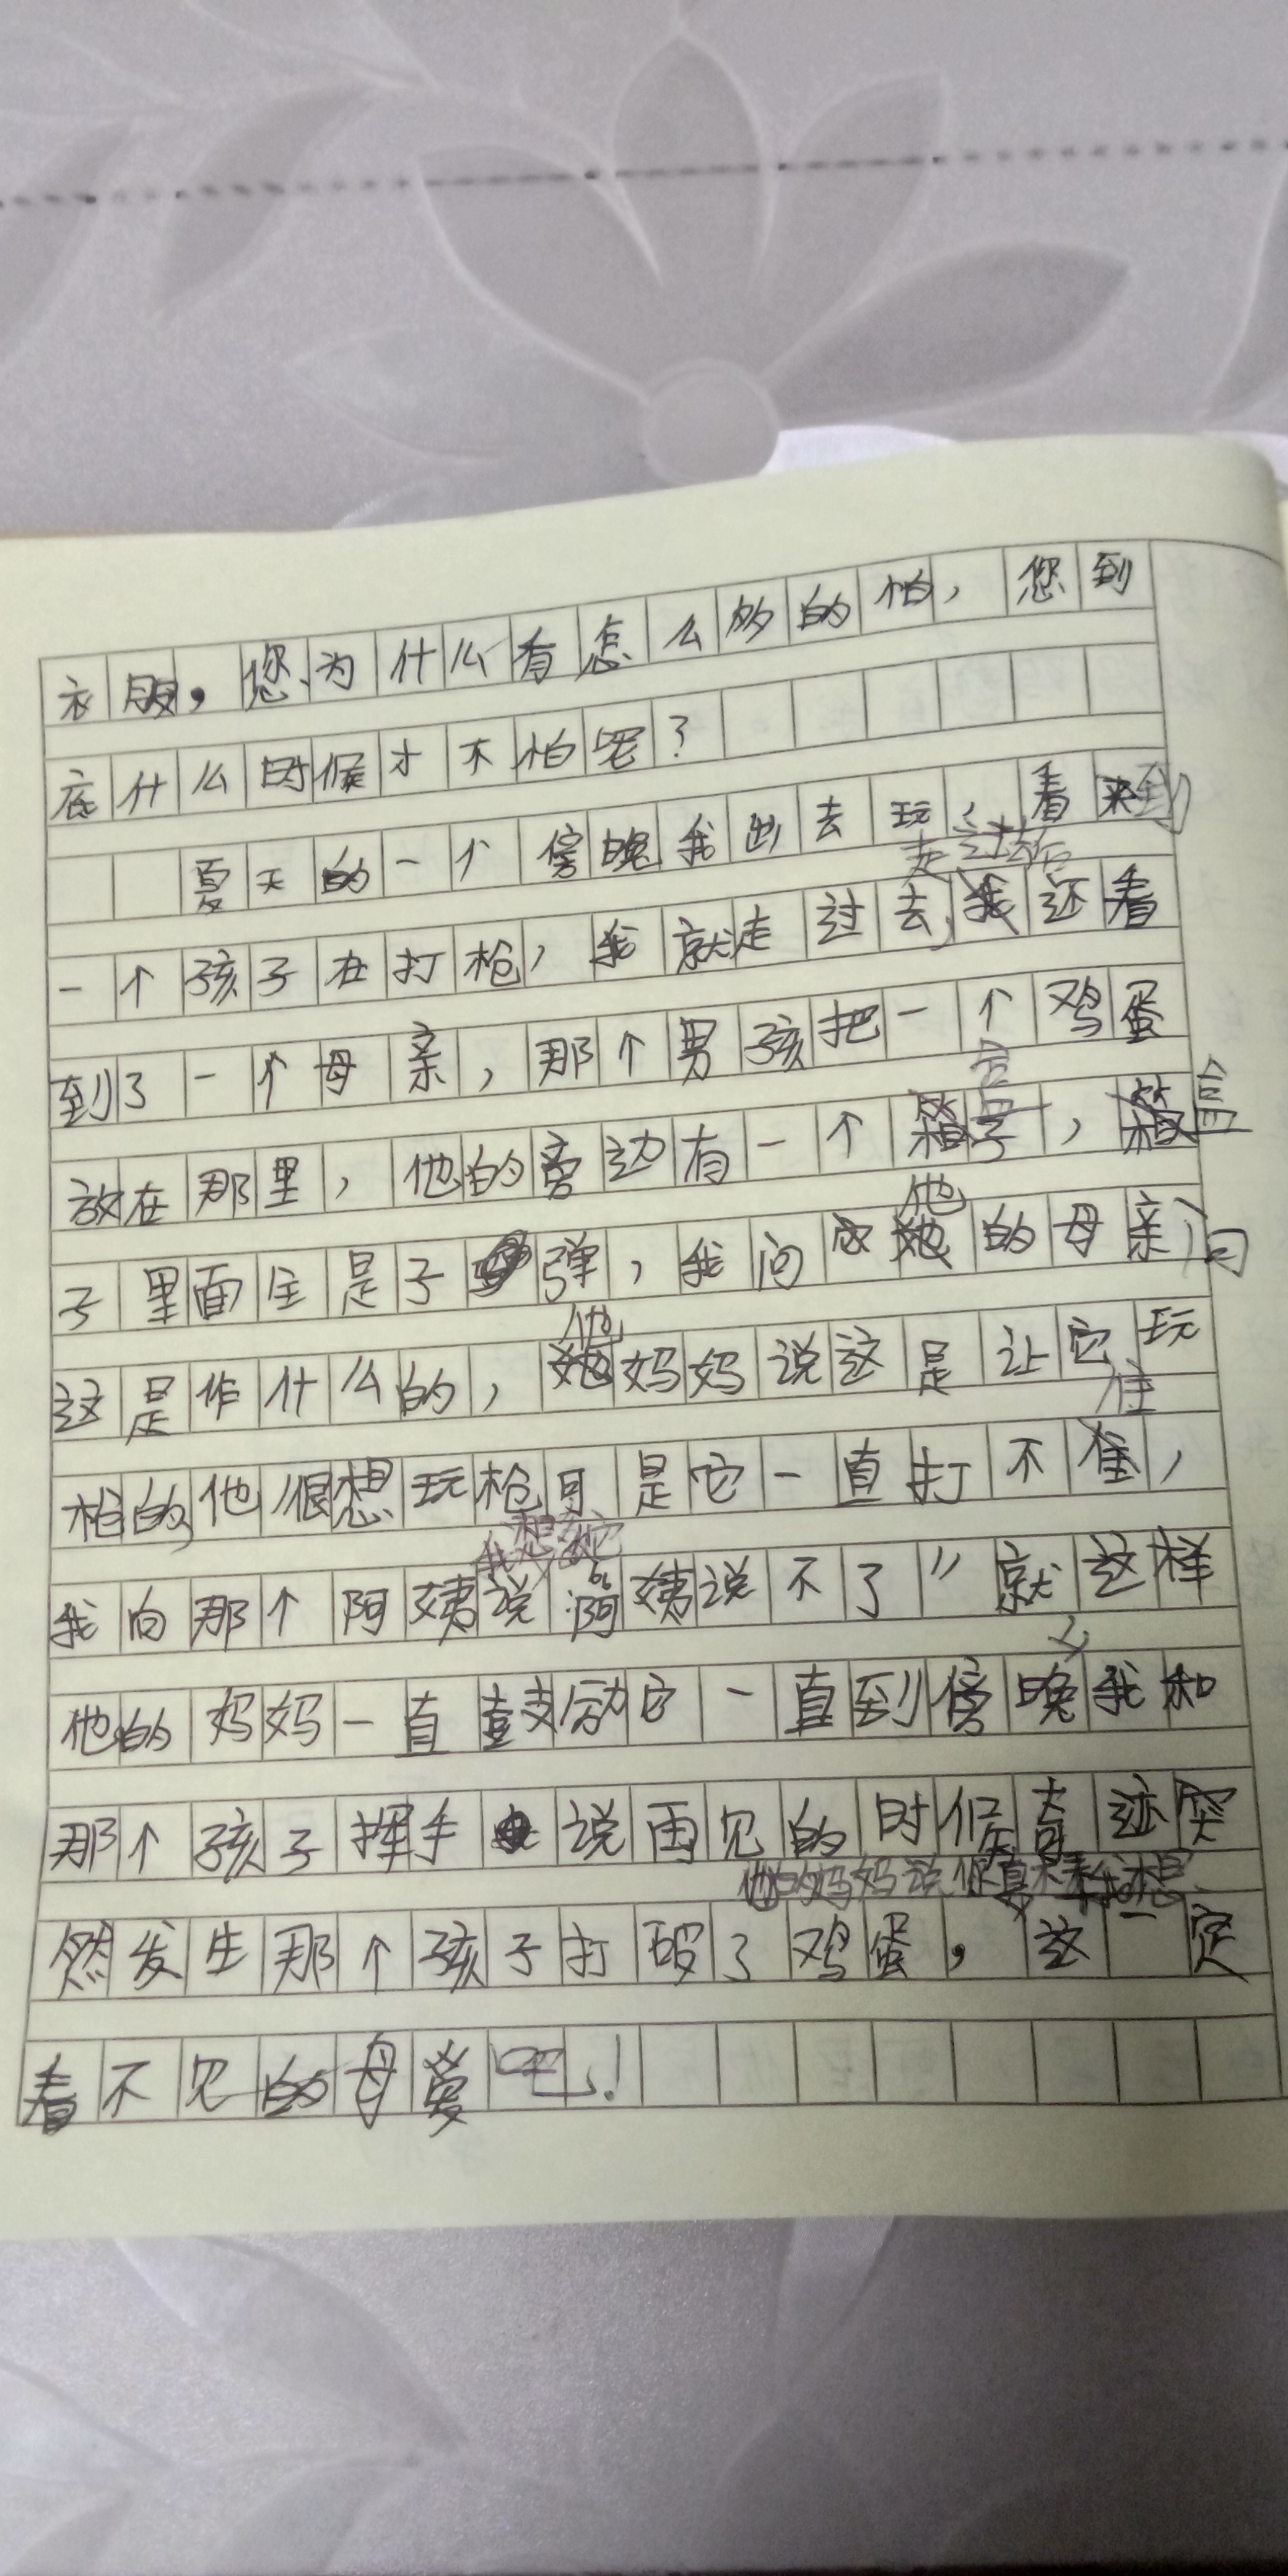 衣服，您为什么有怎么多的怕，您到
底什么时候才不怕呢？
夏天的一个傍晚我出去玩，看来到
走过去后
一个孩子在打枪，我就走过去，我还看
到了一个母亲，那个男孩把一个鸡蛋
盒
放在那里，他的旁边有一个箱子，箱盒
他
子里面全是子弹，我问她的母亲问
他
这是作什么的，她妈妈说这是让它玩
枪的他很想玩枪可是它一直打不准，
我想
我向那个阿姨说“阿姨说不了”就这样
他的妈妈一直鼓励它一直到傍晚我和
那个孩子挥手说再见的时候奇迹突
他的妈妈说你真棒我想
然发生那个孩子打破了鸡蛋，这一定
看不见的母爱吧！